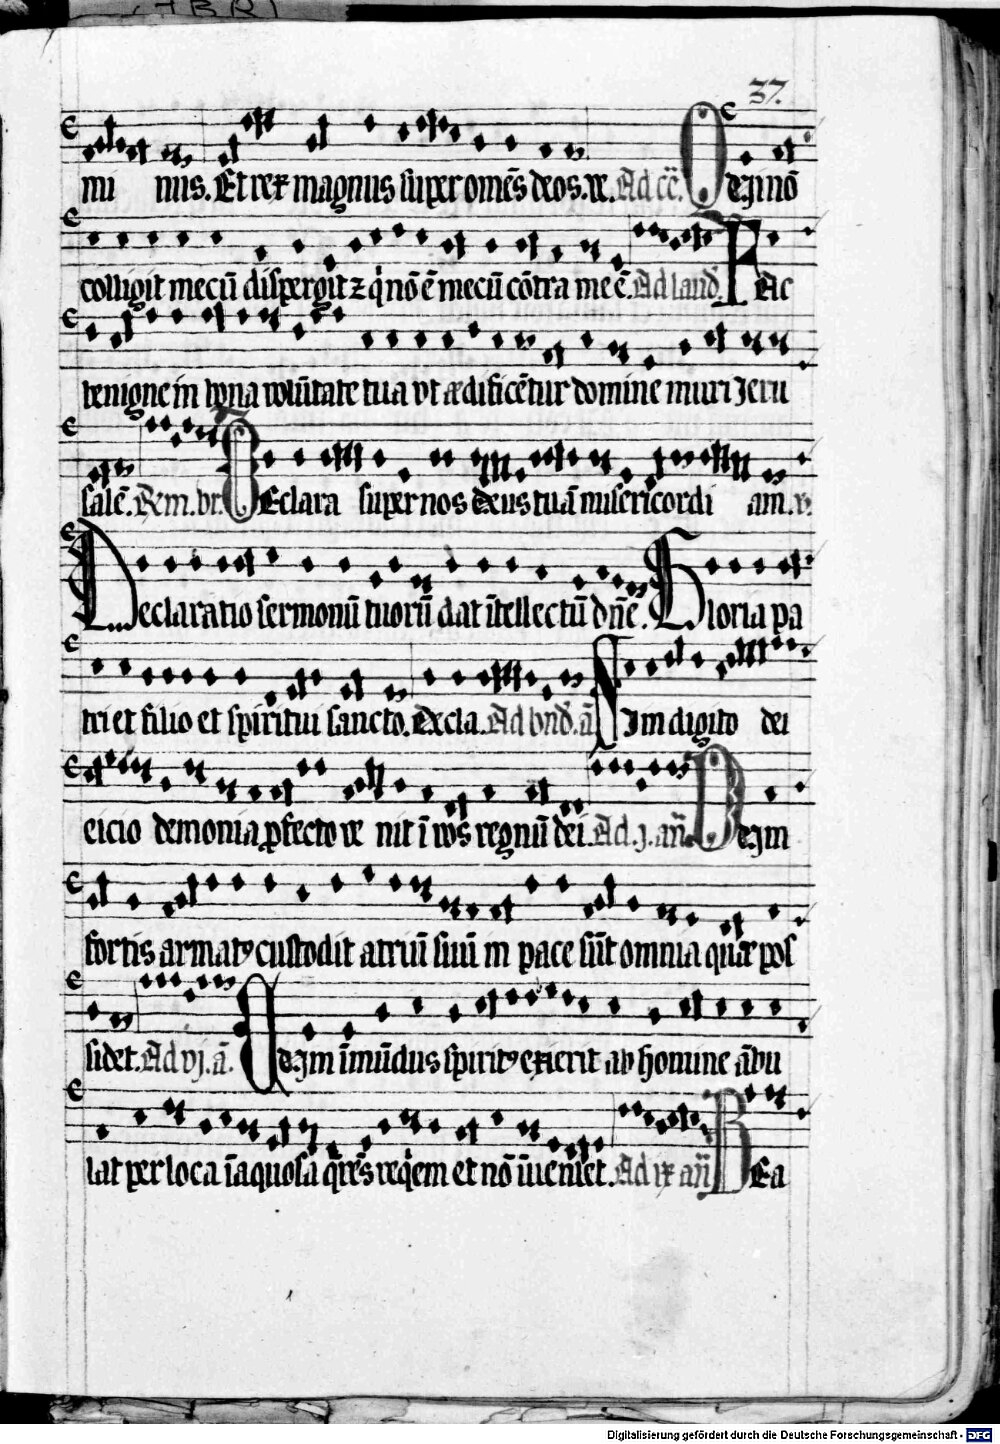 37.
mi nus. Et rex magnus suꝑ om̄es deos. ve. Ad cē. Qui nō
colligit mecū dispergit ⁊ q̇ nō ē mecū cōtra me ē. Ad laud. FAc
benigne in bona volūtate tua vt ædificētur domine muri Jeru
salē. Rm. br. DEclara super nos deus tuā misericordi am. v.
Declaratio sermonū tuorū dat ītellectū dn̄e. Gloria pa
tri et filio et spiritui sancto. Excla. Ad bnd. ā SIin digito dei
eicio demonia ꝓfecto ve nit ī vos regnū dei. Ad .j. an̄. Dum
fortis armatꝰ custodit atriū suū in pace sūt omnia quæ pos
sidet. Ad vj. ā. Cum īmūdus spiritꝰ exierit ab homine ābu
lat per loca īaquosa q̄rēs reqͥem et nō īueniet. Ad ix an̄ BEa
Digitalisierung gefördert durch die Deutsche Forschungsgemeinschaft - DFG